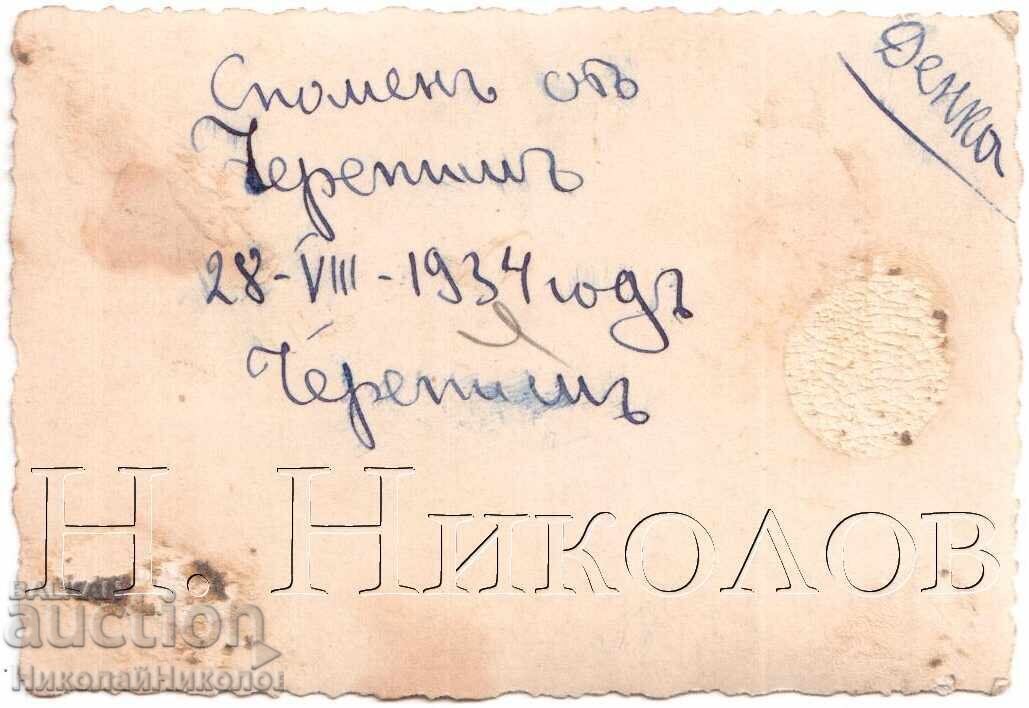 Денка
Споменъ отъ
Черепишъ
28-VIII-1934 годъ
Черепишъ
Н. Николов
auction
НиколайНиколов